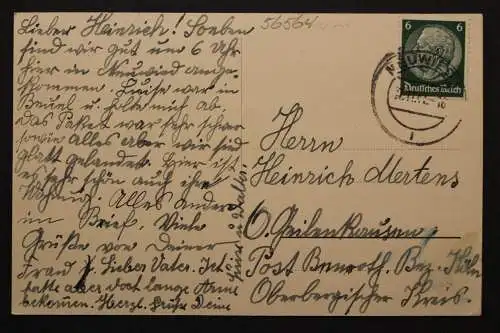 Lieber Heinrich! Soeben
sind wir gut um 6 Uhr
hier in Neuwied ange-
kommen. Luise war in
Beuel u. holte mich ab,
das Paket war sehr schwer
sowie Alles aber wir sind
glatt gelandet. Hier ist
es sehr schön auch ihre
Wohnung. Alles Andere
im Brief. Viele
Grüße von Deiner
Frau
Lieber Vater.
aber doch lange Arme
bekommen. Herzl. Grüße Deine
56564
6 6
Deutsches Reich
NEUWIED
1
Herrn
Heinrich Mertens
Geilenkausen
Post Benroth, Bez. Köln
Oberbergischer Kreis.